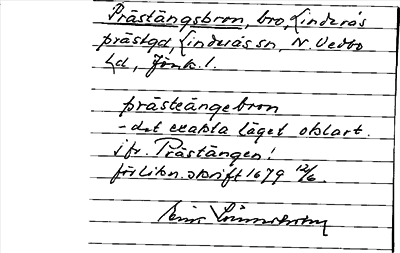 Prästängsbron, bro, Linderås
prästgd, Linderås sn, N. Vedbo
hd, Jönk. l.
prästeängebron
- det exakta läget oklart.
jfr. Prästängen!
förlikn.skrift 1679 12/6